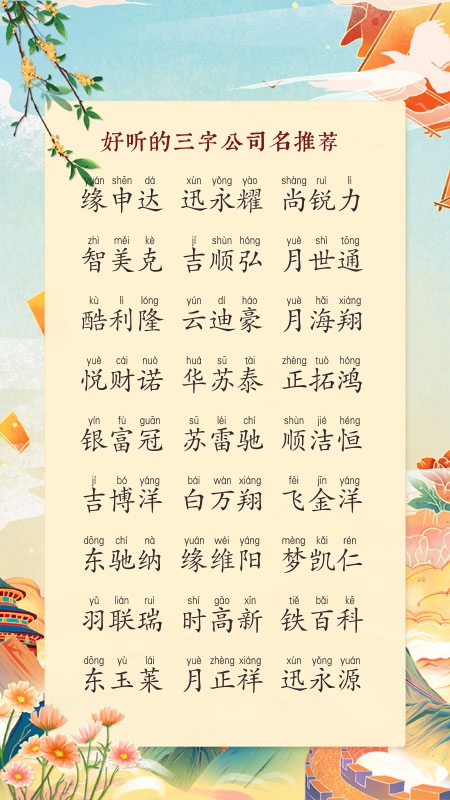 好听的三字公司名推荐
yuán shēn dá xùn yǒng yào shàng ruì lì
缘申达 迅永耀 尚锐力
zhì měi kè jí shùn hóng yuè shì tōng
智美克 吉顺弘 月世通
kù lì lóng yún dí háo yuè hǎi xiáng
酷利隆 云迪豪 月海翔
yuè cái nuò huá sū tài zhèng tuò hóng
悦财诺 华苏泰 正拓鸿
yín fù guān sū léi chí shùn jié héng
银富冠 苏雷驰 顺洁恒
jí bó yáng bái wàn xiáng fēi jīn yáng
吉博洋 白万翔 飞金洋
dōng chí nà yuán wéi yáng mèng kǎi rén
东驰纳 缘维阳 梦凯仁
yǔ lián ruì shí gāo xīn tiě bǎi kē
羽联瑞 时高新 铁百科
dōng yù lái yuè zhèng xiáng xùn yǒng yuán
东玉莱 月正祥 迅永源